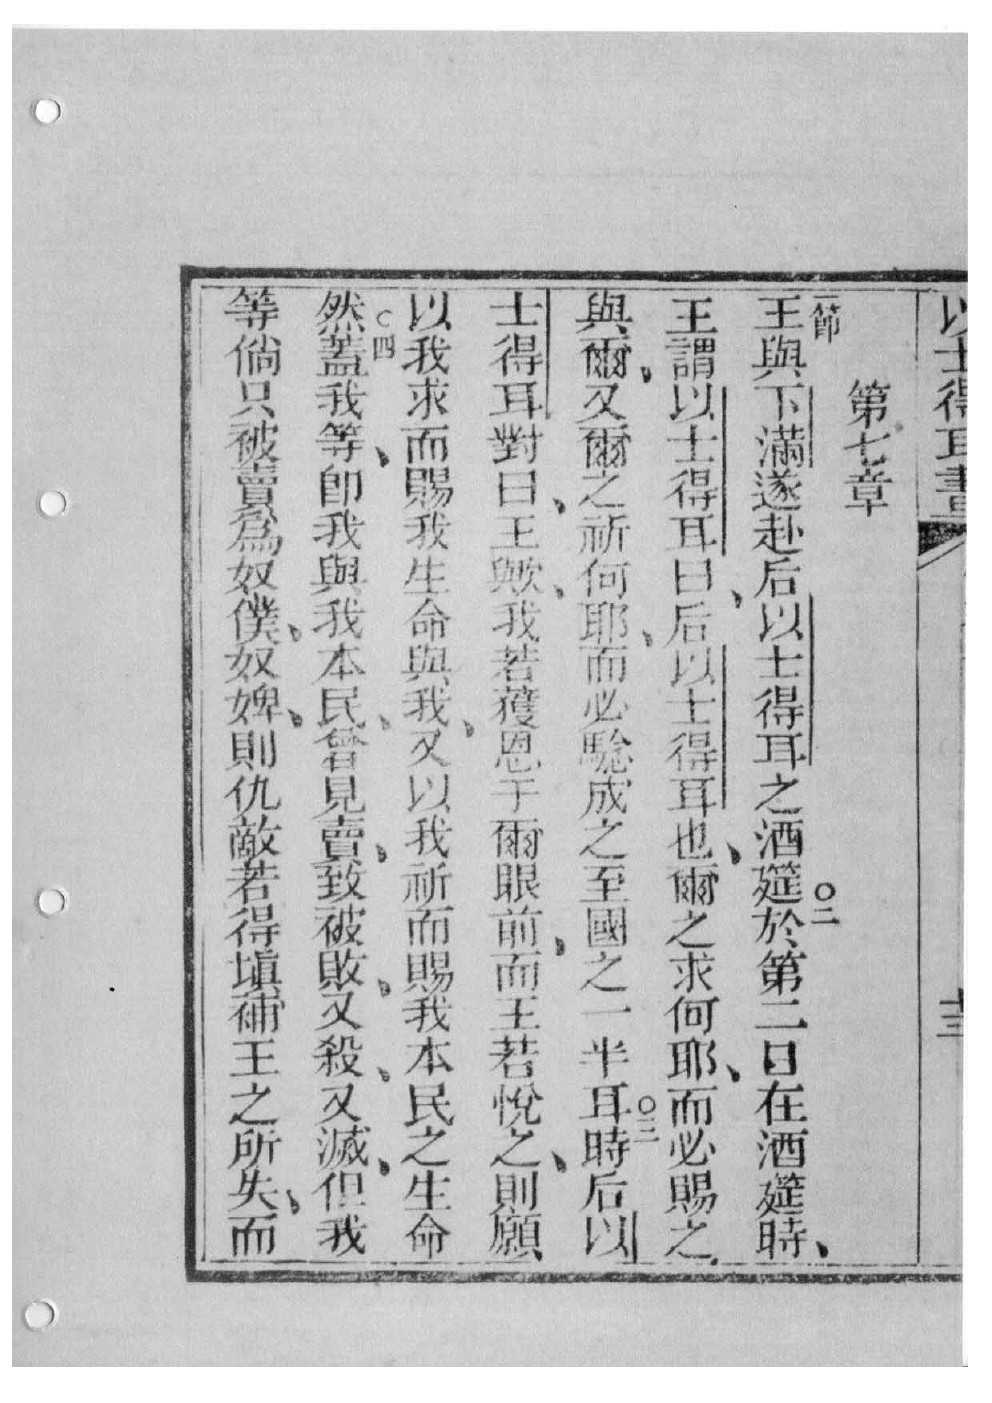 以士得耳書
十三
第七章
一節
王與下滿遂赴后以士得耳之酒筵○二於第二日在酒筵時、
王謂以士得耳曰、后以士得耳也、爾之求何耶、而必賜之
與爾、又爾之祈何耶、而必騐成之至國之一半耳○三時后以
士得耳對曰、王歟、我若蒦恩于爾眼前、而王若悅之、則願
以我求而賜我生命與我、又以我祈而賜我本民之生命
然○四蓋我等、卽我與我本民、曾見賣、致被敗、又殺、又滅、但我
等倘只被賣爲奴僕、奴婢、則仇敵若得塡補王之所失、而